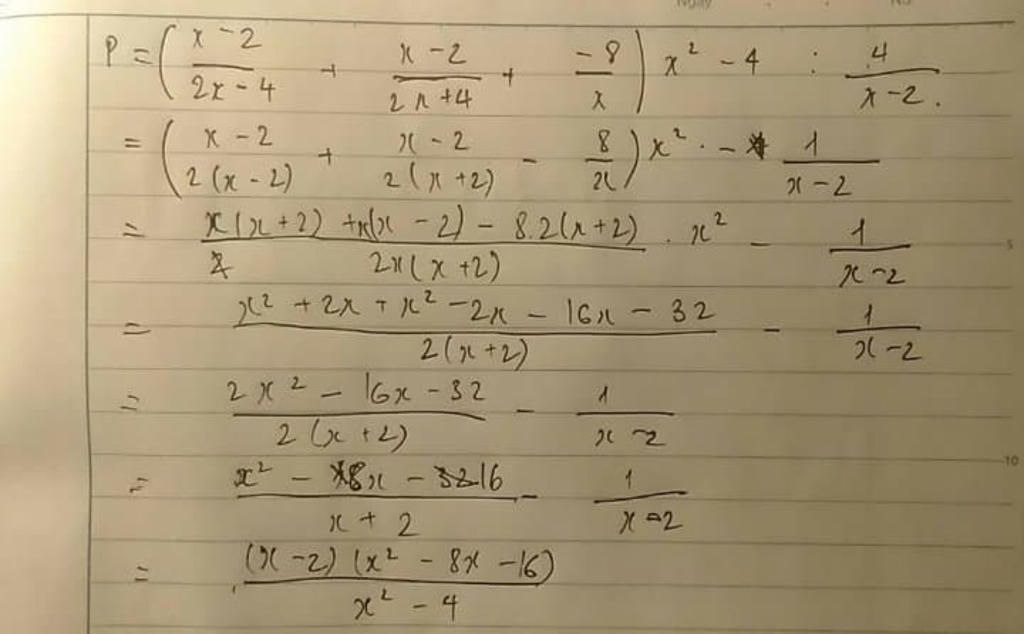 Ngày
No.
P = ( (x - 2)/(2x - 4) + (x - 2)/(2x + 4) + (-8)/x ) x² - 4 : 4/(x - 2).
= ( (x - 2)/(2(x - 2)) + (x - 2)/(2(x + 2)) - 8/x ) x² · - 1/(x - 2)
= (x(x + 2) + x(x - 2) - 8.2(x + 2))/(2x(x + 2)) . x² - 1/(x - 2)
5
= (x² + 2x + x² - 2x - 16x - 32)/(2(x + 2)) - 1/(x - 2)
= (2x² - 16x - 32)/(2(x + 2)) - 1/(x - 2)
= (x² - 8x - 16)/(x + 2) - 1/(x - 2)
10
= ((x - 2)(x² - 8x - 16))/(x² - 4)